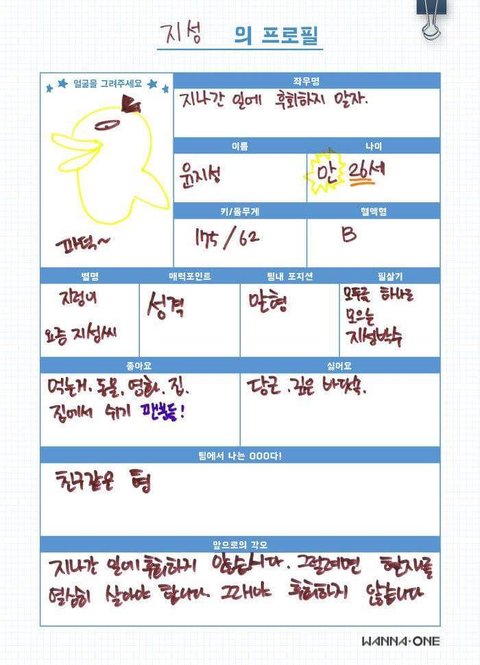 지성 의 프로필
얼굴을 그려주세요
파덕~
좌우명
지나간 일에 후회하지 말자.
이름
윤지성
나이
만 26세
키/몸무게
175/62
혈액형
B
별명
지정이
요즘 지성씨
매력포인트
성격
팀내 포지션
맏형
필살기
모두를 하나로
모으는
지성박수
좋아요
먹는거, 동물, 영화, 집,
집에서 쉬기 팬분들!
싫어요
당근, 깊은 바닷속.
팀에서 나는 OOO다!
친구같은 형
앞으로의 각오
지나간 일에 후회하지 않습니다. 그럴려면 현재를
열심히 살아야 합니다. 그래야 후회하지 않습니다
WANNA·ONE